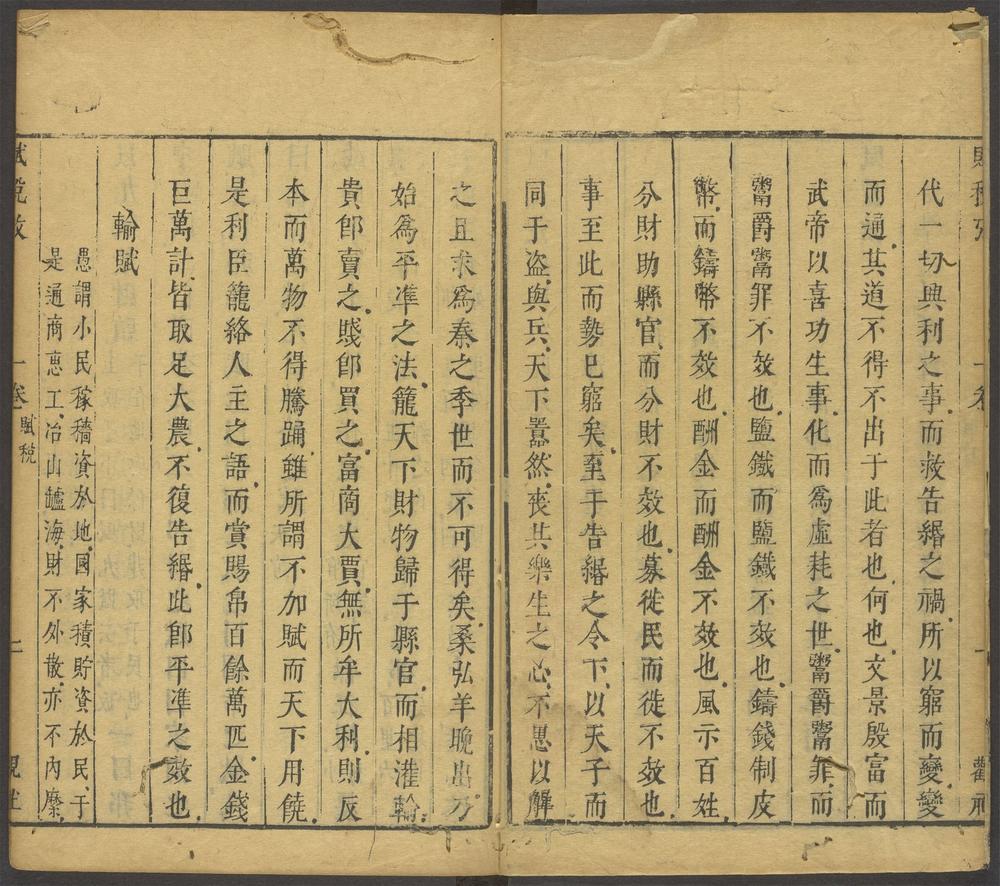 代一切興利之事而救告緡之禍所以窮而變變
而通其道不得不出于此者也何也文景殷富而
武帝以喜功生事化而為虛耗之世鬻爵鬻罪而
鬻爵鬻罪不效也鹽鐵而鹽鐵不效也鑄錢制皮
幣而鑄幣不效也酬金而酬金不效也風示百姓
分財助縣官而分財不效也募徙民而徙不效也
事至此而勢已窮矣至于告緡之令下以天子而
同于盜與兵天下囂然喪其樂生之心不思以解
之且求為秦之季世而不可得矣桑弘羊晚出乃
始為平準之法籠天下財物歸于縣官而相灌輸
貴即賣之賤即買之富商大賈無所牟大利則反
本而萬物不得騰踊雖所謂不加賦而天下用饒
是利臣籠絡人主之語而賞賜帛百餘萬匹金錢
巨萬計皆取足大農不復告緡此即平準之效也
輸賦
愚謂小民稼穡資於地國家積貯資於民于
是通商惠工冶山鑪海財不外散亦不內縻
賦稅攷
一卷 賦稅
二